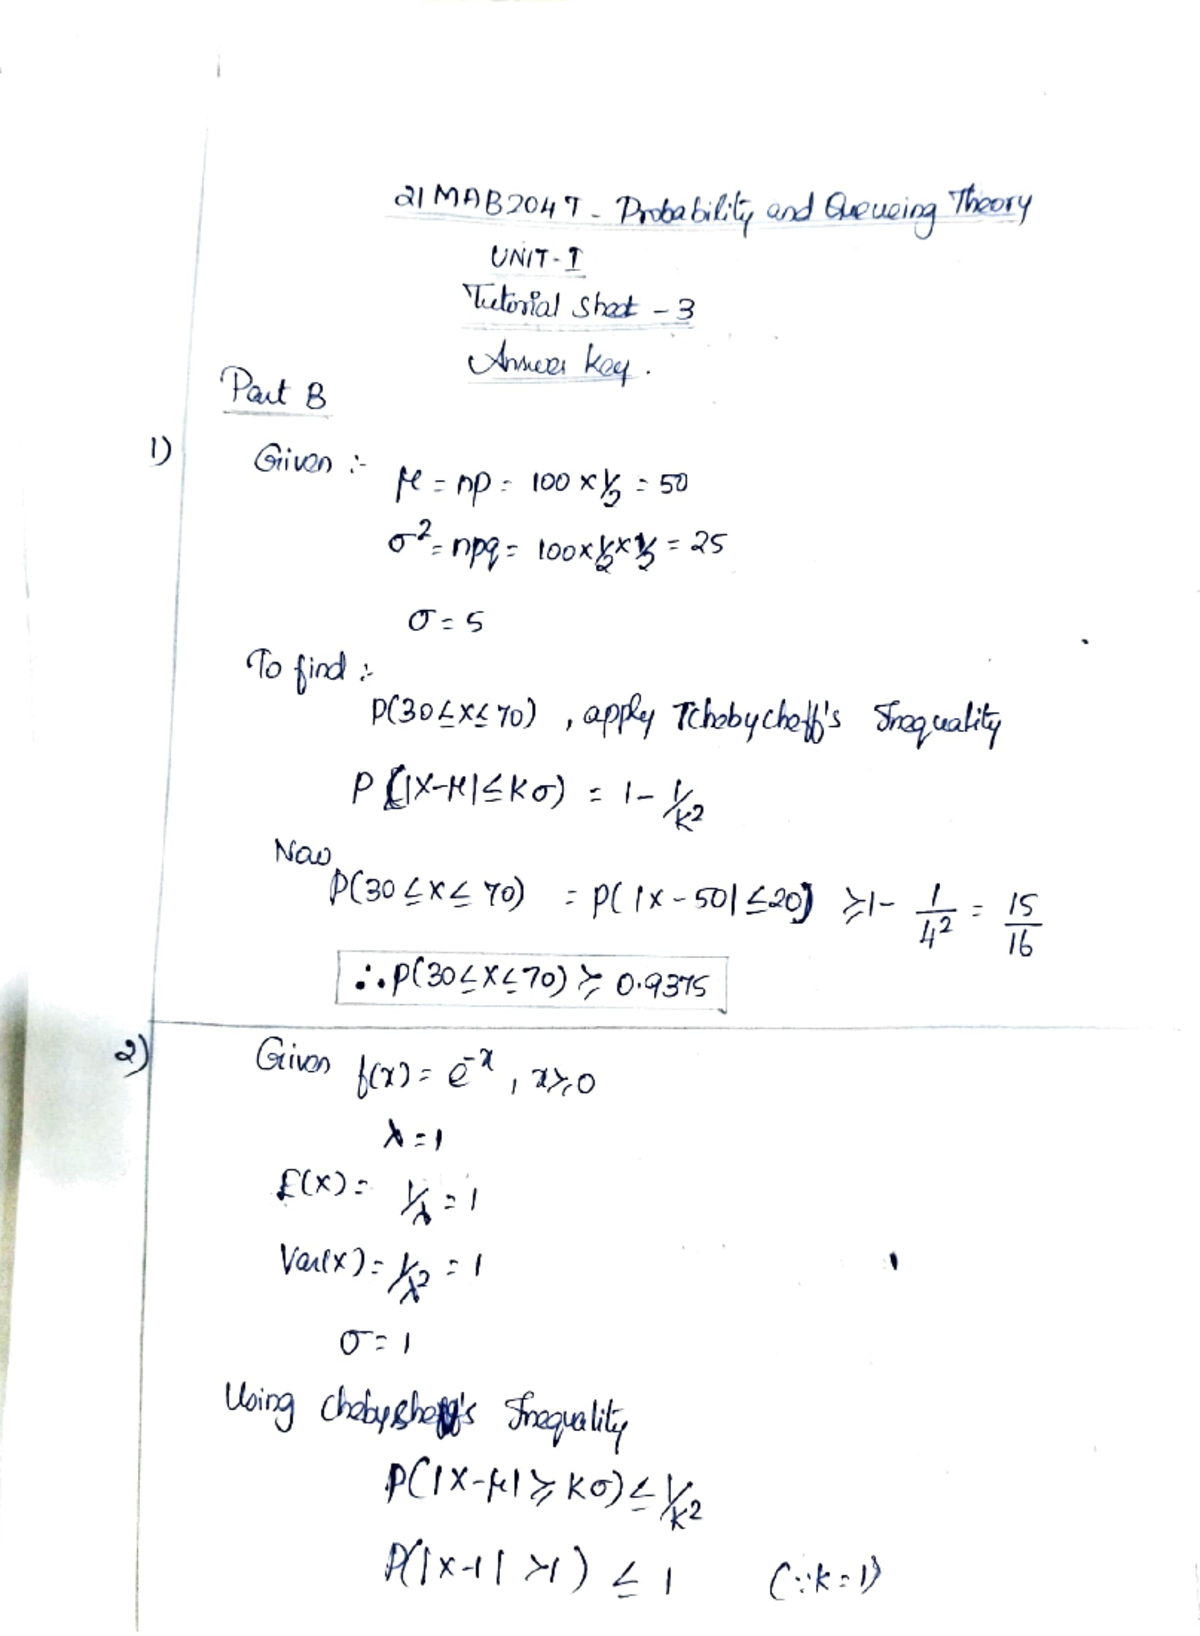 21MAB204T - Probability and Queueing Theory
UNIT-I
Tutorial Sheet - 3
Answer key.
Part B
1) Given :-
μ = np = 100 × 1/2 = 50
σ² = npq = 100 × 1/2 × 1/2 = 25
σ = 5
To find :-
P(30 ≤ X ≤ 70) , apply Tchebycheff's Inequality
P(|X-μ| ≤ kσ) = 1 - 1/k²
Now
P(30 ≤ X ≤ 70) = P(|X - 50| ≤ 20) ≥ 1 - 1/4² = 15/16
∴ P(30 ≤ X ≤ 70) ≥ 0.9375
2) Given f(x) = e^-x , x ≥ 0
λ = 1
E(X) = 1/λ = 1
Var(X) = 1/λ² = 1
σ = 1
Using Chebysheff's Inequality
P(|X-μ| ≥ kσ) ≤ 1/k²
P(|X-1| > 1) ≤ 1 (∵ k = 1)